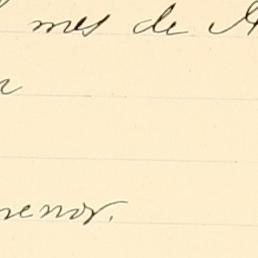 mes de A
menor.